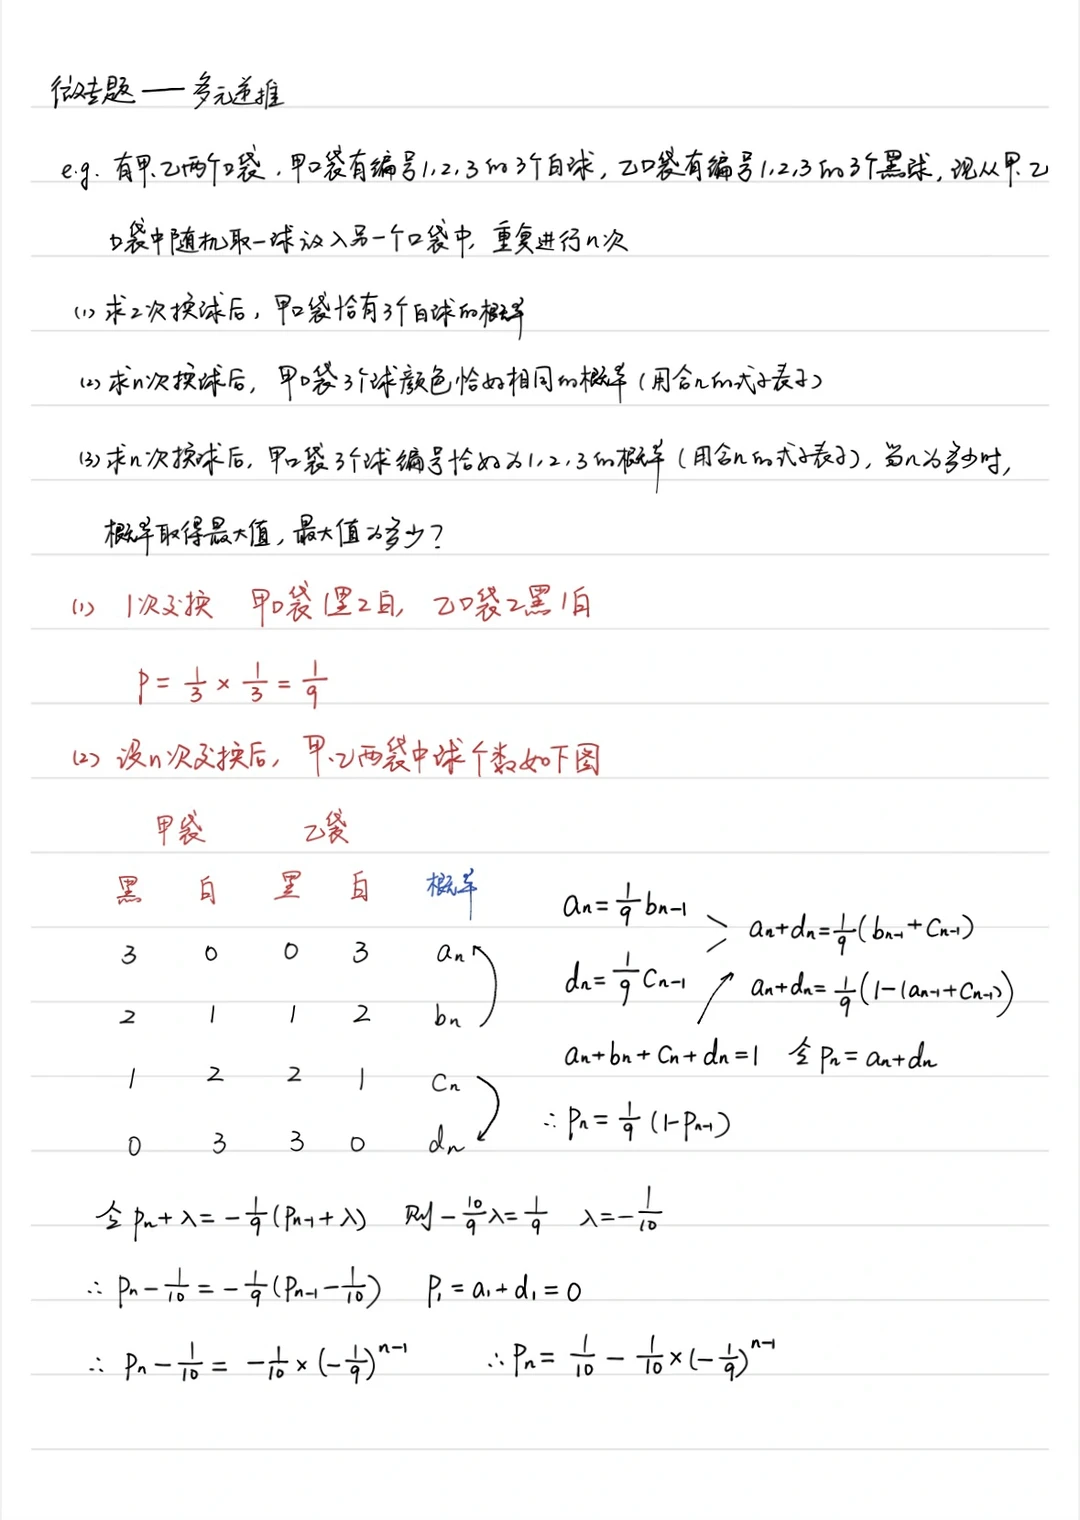 微专题——多元递推
e.g. 有甲、乙两个口袋，甲口袋有编号1,2,3的3个白球，乙口袋有编号1,2,3的3个黑球，现从甲、乙
口袋中随机取一球放入另一个口袋中，重复进行n次
(1) 求2次换球后，甲口袋恰有3个白球的概率
(2) 求n次换球后，甲口袋3个球颜色恰好相同的概率（用含n的式子表示）
(3) 求n次换球后，甲口袋3个球编号恰好为1,2,3的概率（用含n的式子表示），当n为多少时，
概率取得最大值，最大值为多少？
(1) 1次交换 甲口袋1黑2白，乙口袋2黑1白
P = 1/3 × 1/3 = 1/9
(2) 设n次交换后，甲、乙两袋中球个数如下图
甲袋 乙袋
黑 白 黑 白 概率
3 0 0 3 aₙ
2 1 1 2 bₙ
1 2 2 1 cₙ
0 3 3 0 dₙ
aₙ = 1/9 bₙ₋₁
dₙ = 1/9 cₙ₋₁
aₙ+dₙ = 1/9(bₙ₋₁+cₙ₋₁)
aₙ+dₙ = 1/9(1-(aₙ₋₁+cₙ₋₁))
aₙ+bₙ+cₙ+dₙ=1 令Pₙ=aₙ+dₙ
∴Pₙ = 1/9 (1-Pₙ₋₁)
令Pₙ+λ = -1/9(Pₙ₋₁+λ) 则-10/9λ = 1/9 λ = -1/10
∴ Pₙ - 1/10 = -1/9(Pₙ₋₁ - 1/10) P₁ = a₁+d₁ = 0
∴ Pₙ - 1/10 = -1/10 × (-1/9)ⁿ⁻¹ ∴Pₙ = 1/10 - 1/10 × (-1/9)ⁿ⁻¹